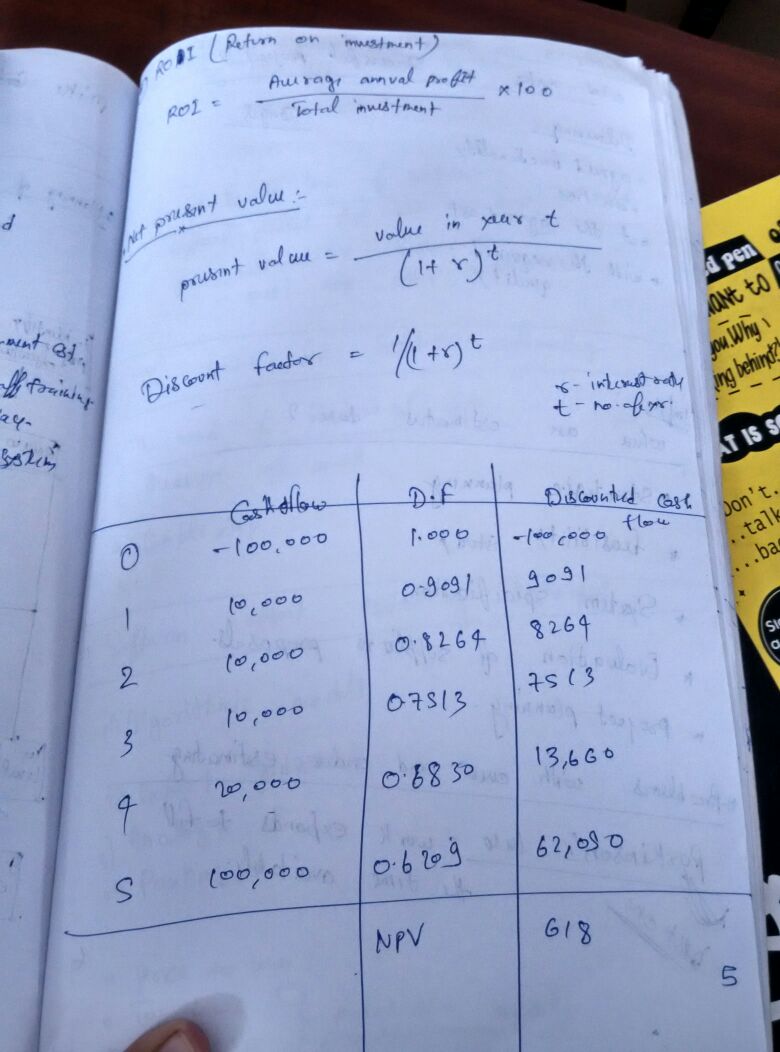 ROI (Return on investment)
ROI = Average annual profit / Total investment × 100
Net present value :-
present value = value in year t / (1 + r)^t
Discount factor = 1/(1 + r)^t
r - interest rate
t - no. of year
Cash flow D.F Discounted cash flow
0 -100,000 1.000 -100,000
1 10,000 0.9091 9091
2 10,000 0.8264 8264
3 10,000 0.7513 7513
4 20,000 0.6830 13,660
5 100,000 0.6209 62,090
NPV 618
5
d
ment est.
ff training
system
d pen
WANT to
you.Why
ing behind?
AT IS SO
Don't.
...talk
...ba